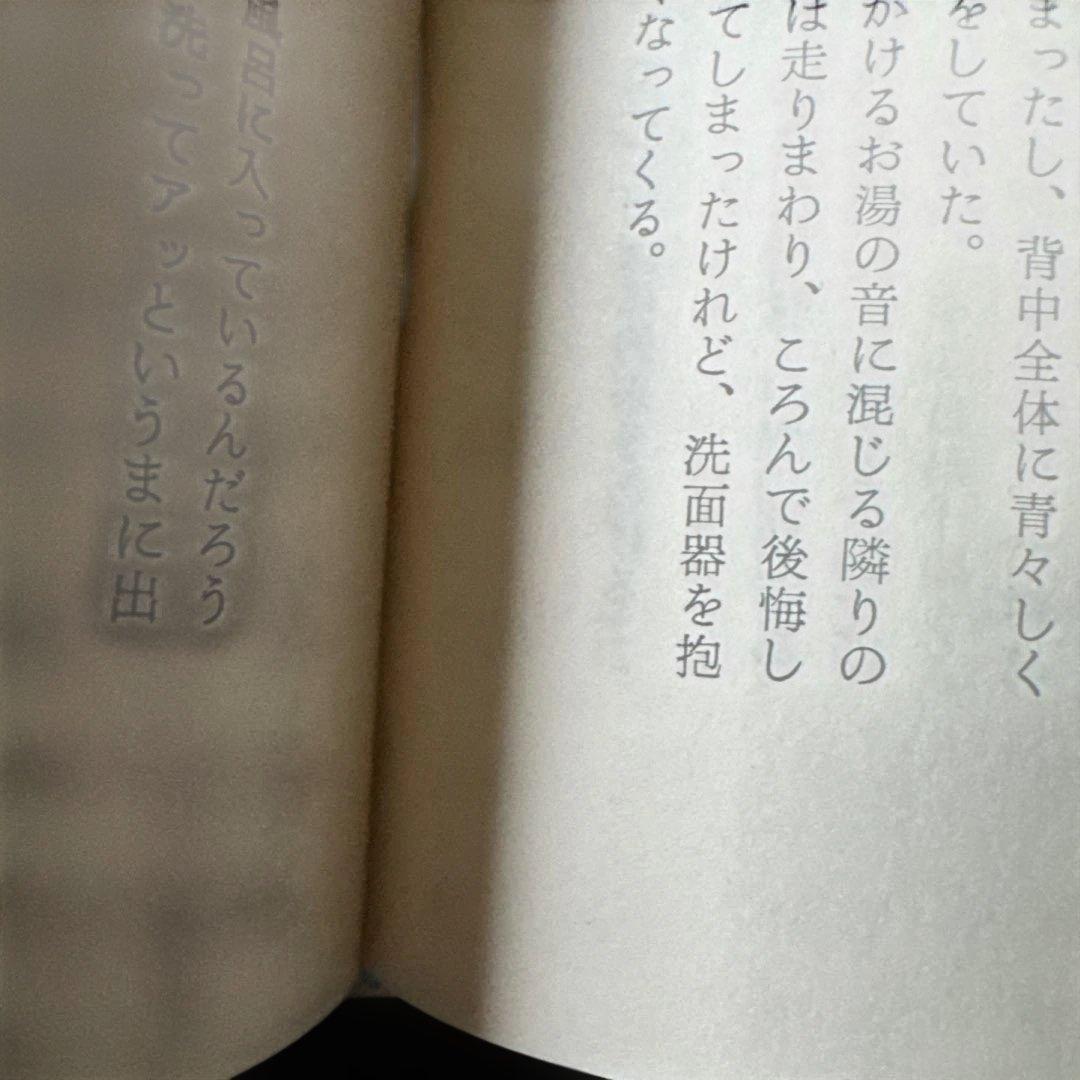 まったし、背中全体に青々しく
をしていた。
かけるお湯の音に混じる隣りの
は走りまわり、ころんで後悔し
てしまったけれど、洗面器を抱
なってくる。
風呂に入っているんだろう
洗ってアッというまに出